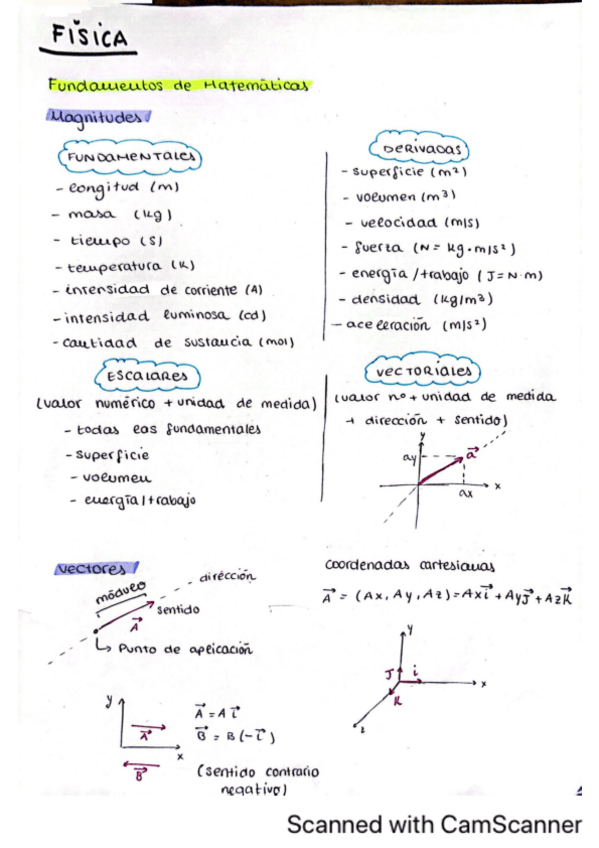 FÍSICA
Fundamentos de Matemáticas
Magnitudes
FUNDAMENTALES
- longitud (m)
- masa (kg)
- tiempo (s)
- temperatura (K)
- intensidad de corriente (A)
- intensidad luminosa (cd)
- cantidad de sustancia (mol)
DERIVADAS
- superficie (m²)
- volumen (m³)
- velocidad (m/s)
- fuerza (N = kg·m/s²)
- energía / trabajo (J = N·m)
- densidad (kg/m³)
- aceleración (m/s²)
ESCALARES
(valor numérico + unidad de medida)
- todas las fundamentales
- superficie
- volumen
- energía / trabajo
VECTORIALES
(valor nº + unidad de medida
+ dirección + sentido)
y
ay
a⃗
ax
x
Vectores
módulo
dirección
sentido
A⃗
Punto de aplicación
y
A⃗
x
B⃗
A⃗ = A i⃗
B⃗ = B (-i⃗)
(sentido contrario
negativo)
coordenadas cartesianas
A⃗ = (Ax, Ay, Az) = Ax i⃗ + Ay J⃗ + Az K⃗
y
J
i
x
K
z
Scanned with CamScanner